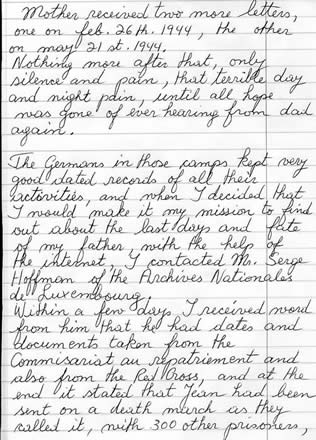 Mother received two more letters,
one on feb. 26th. 1944, the other
on may 21 st. 1944.
Nothing more after that, only
silence and pain, that terrible day
and night pain, until all hope
was gone of ever hearing from dad
again.
The Germans in those camps kept very
good dated records of all their
activities, and when I decided that
I would make it my mission to find
out about the last days and fate
of my father, with the help of
the internet, I contacted Mr. Serge
Hoffman of the Archives Nationales
de Luxembourg.
Within a few days I received word
from him that he had dates and
documents taken from the
Commisariat au repatriement and
also from the Red Cross, and at the
end it stated that Jean had been
sent on a death march as they
called it, with 300 other prisoners,